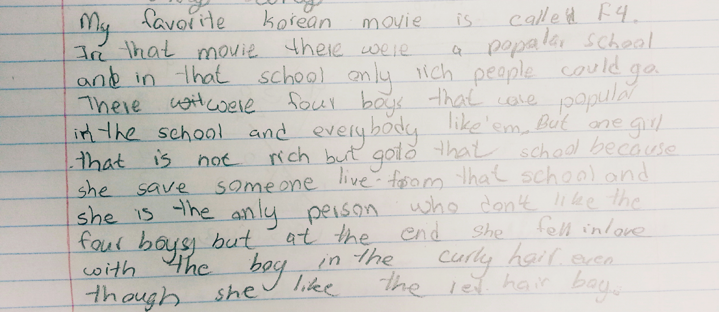 My favorite korean movie is called F4.
In that movie there were a popular school
and in that school only rich people could go.
There were four boys that are popular
in the school and everybody like'em. But one girl
that is not rich but goto that school because
she save someone live from that school and
she is the only person who don't like the
four boys but at the end she fell inlove
with the boy in the curly hair. even
though she like the red hair boy.